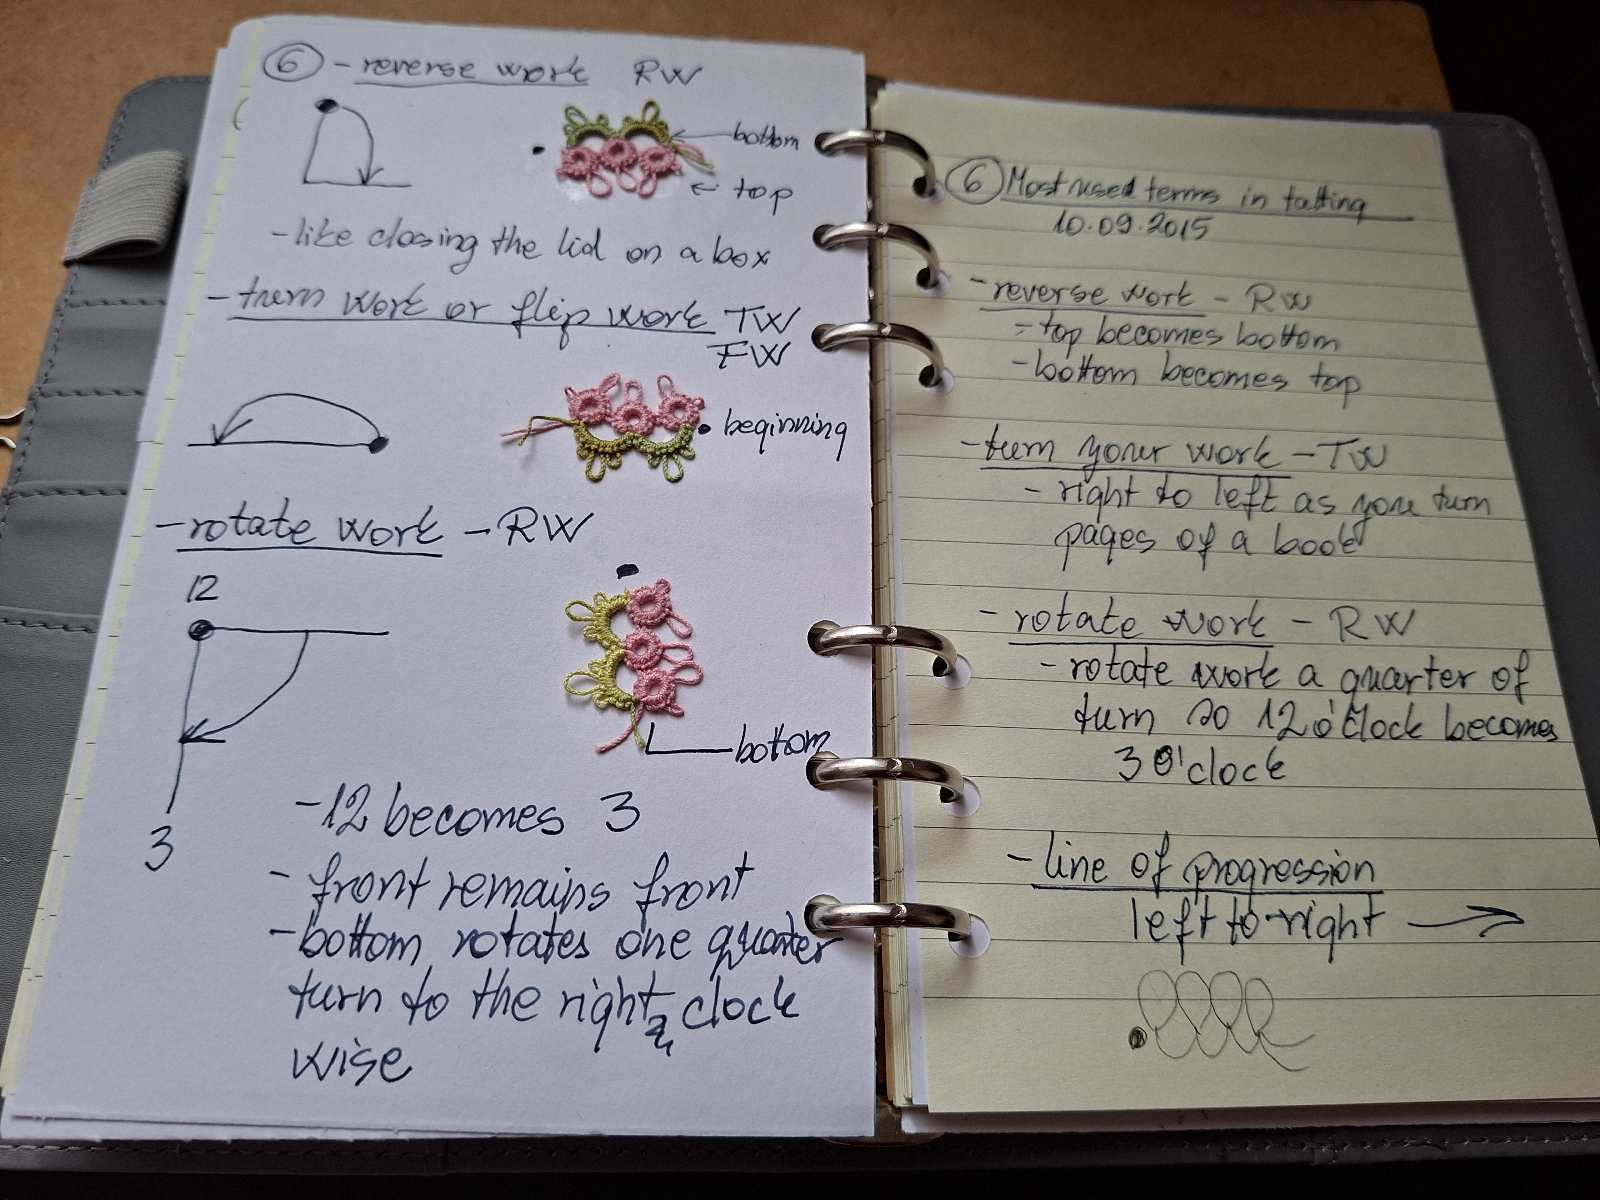 6 - reverse work RW
bottom
← top
- like closing the lid on a box
- turn work or flip work TW
FW
beginning
- rotate work - RW
12
3
bottom
- 12 becomes 3
- front remains front
- bottom rotates one quarter
turn to the right clock
wise
6 Most used terms in tatting
10.09.2015
- reverse work - RW
- top becomes bottom
- bottom becomes top
- turn your work - TW
- right to left as you turn
pages of a book
- rotate work - RW
- rotate work a quarter of
turn so 12 o'clock becomes
3 o'clock
- line of progression
left to right →